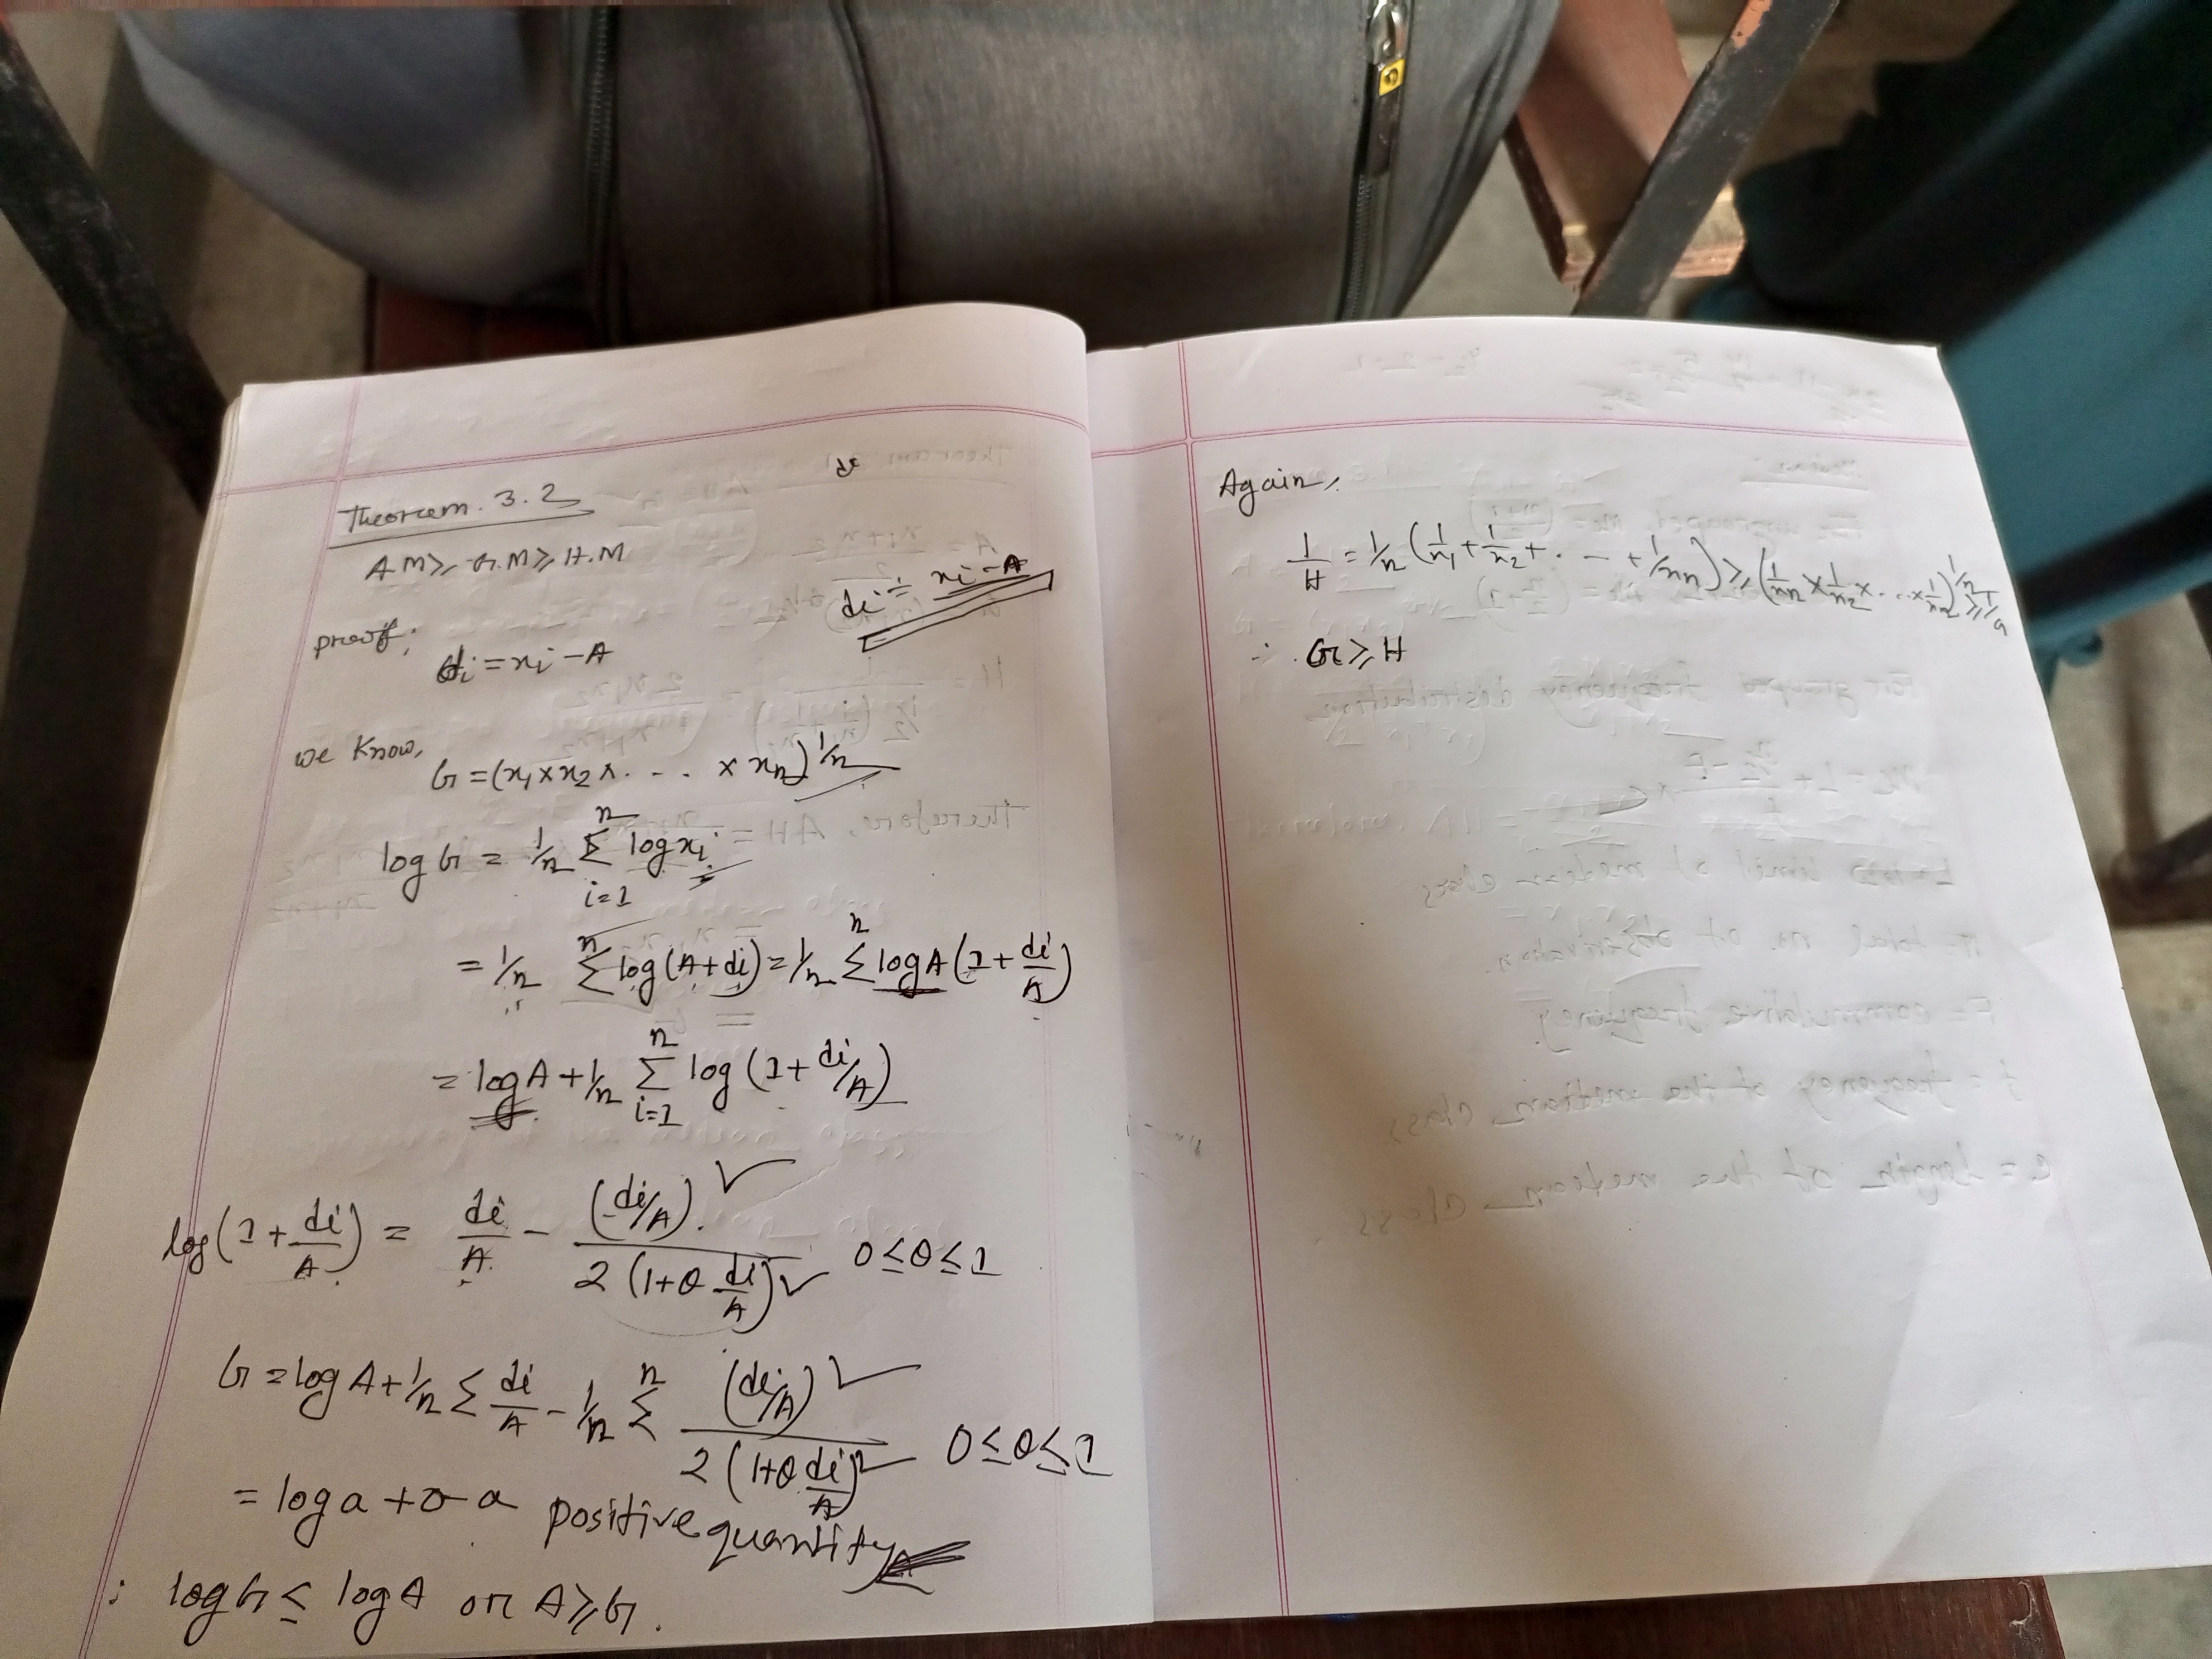 Theorem. 3.2
AM ≥ G.M ≥ H.M
di = xi - A
proof;
di = xi - A
we know,
G = (x1 × x2 × . - - . × xn)^1/n
log G = 1/n Σ_{i=1}^{n} log xi
= 1/n Σ^n log (A + di) = 1/n Σ^n log A (1 + di/A)
= log A + 1/n Σ_{i=1}^{n} log (1 + di/A)
log (1 + di/A) = di/A - (di/A)^2 / 2 (1 + θ di/A)^2 0 ≤ θ ≤ 1
G = log A + 1/n Σ di/A - 1/n Σ^n (di/A)^2 / 2 (1 + θ di/A)^2 0 ≤ θ ≤ 1
= log a + 0 - a positive quantity
∴ log G ≤ log A or A ≥ G.
Again,
1/H = 1/n (1/x1 + 1/x2 + . - - + 1/xn) ≥ (1/xn × 1/x2 × . . . × 1/xn)^1/n ≥ 1/G
∴ G ≥ H